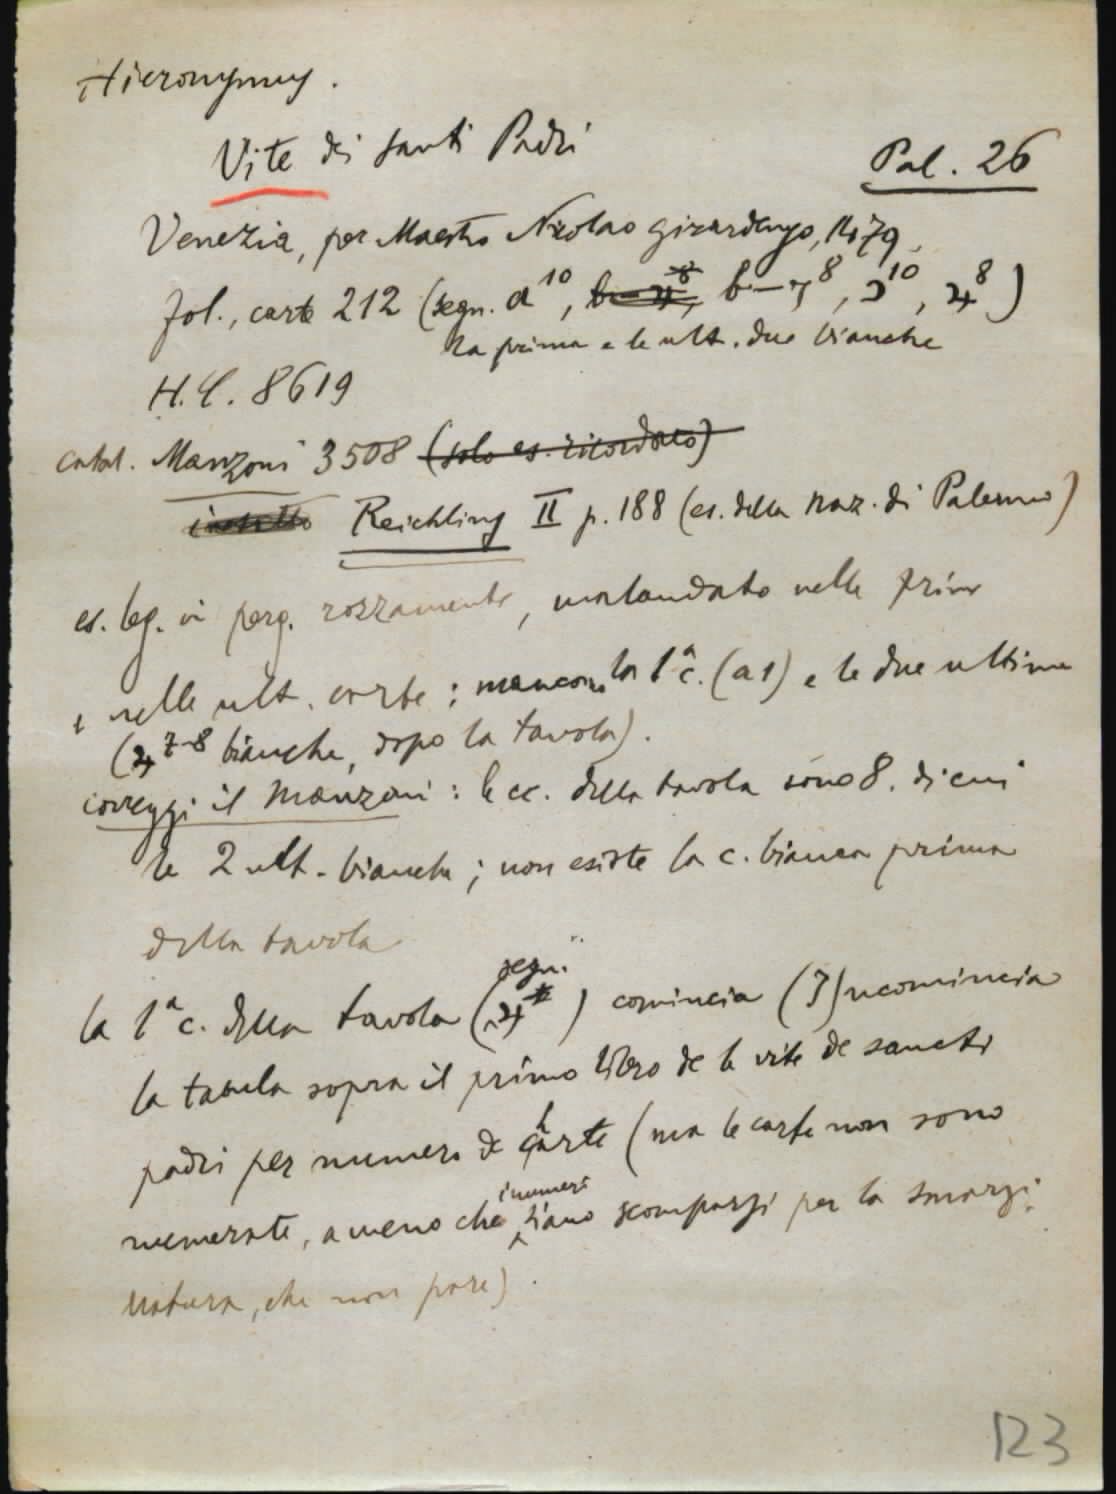 Hieronymus.
Vite dei santi Padri
Pal. 26
Venezia, per Maestro Nicolao girardengo, 1479.
fol., carte 212 (segn. a10, b—8, b—8, ɔ10, 48)
la prima e le ult. due bianche
H.C. 8619
catal. Manzoni 3508 (solo es. ricordato)
Reichling II p. 188 (es. della naz. di Palermo)
es. leg. in perg. rozzamente, malandato nelle prime
e nelle ult. carte; mancano la 1ª c. (a1) e le due ultime
(4 7-8 bianche, dopo la tavola).
correggi il Manzoni: le cc. della tavola sono 8. di cui
le 2 ult. bianche; non esiste la c. bianca prima
della tavola
la 1ª c. della tavola (segn. 4) comincia (I)ncomincia
la tabula sopra il primo libro de le vite de sancti
padri per numero de charte (ma le carte non sono
numerate, a meno che i numeri siano scomparsi per la smargi-
natura, che non pare).
123